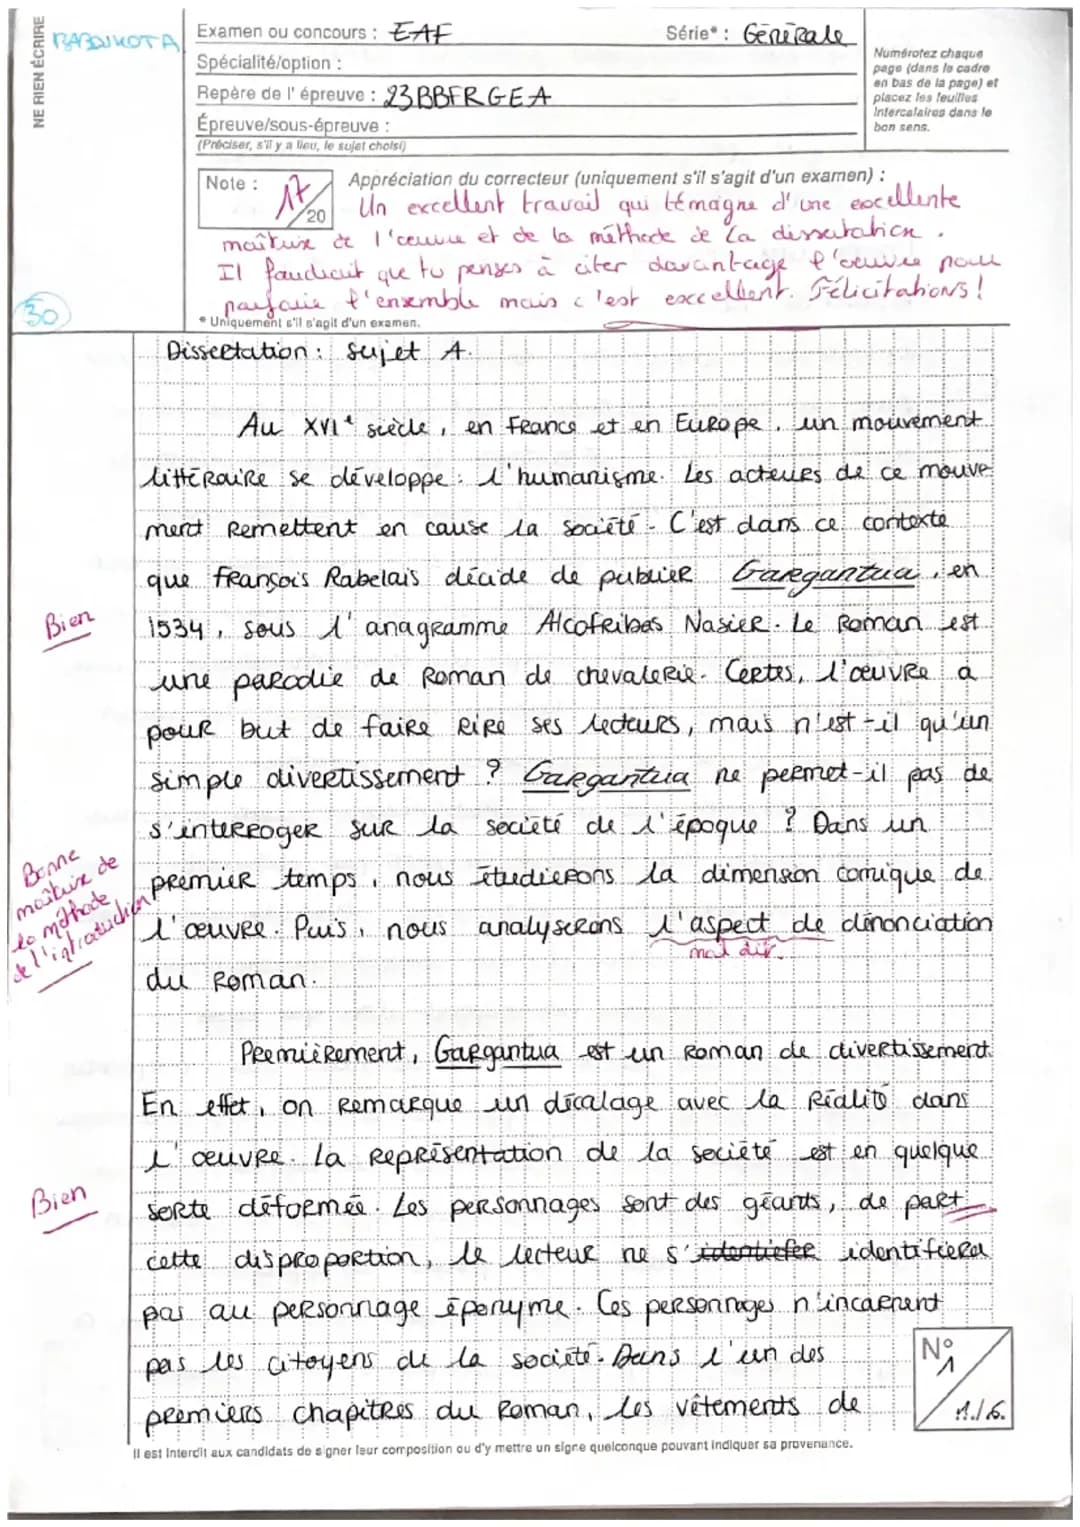 NE RIEN ÉCRIRE
Examen ou concours : EAF
Série* : Générale
Spécialité/option :
Repère de l'épreuve : 23BBFRGEA
Épreuve/sous-épreuve :
(Préciser, s'il y a lieu, le sujet choisi)
Numérotez chaque
page (dans le cadre
en bas de la page) et
placez les feuilles
intercalaires dans le
bon sens.
Note :
17/20
Appréciation du correcteur (uniquement s'il s'agit d'un examen) :
Un excellent travail qui témoigne d'une excellente
maîtrise de l'œuvre et de la méthode de la dissertation.
Il faudrait que tu penses à citer davantage l'œuvre pour
parfaire l'ensemble mais c'est excellent. Félicitations !
30
* Uniquement s'il s'agit d'un examen.
Dissertation : sujet A.
Au XVIe siècle, en France et en Europe, un mouvement
littéraire se développe : l'humanisme. Les acteurs de ce mouve
ment remettent en cause la société. C'est dans ce contexte
que François Rabelais décide de publier Gargantua, en
Bien
1534, sous l'anagramme Alcofribas Nasier. Le Roman est
une parodie de Roman de chevalerie. Certes, l'œuvre a
pour but de faire rire ses lecteurs, mais n'est-il qu'un
simple divertissement ? Gargantua ne permet-il pas de
s'interroger sur la société de l'époque ? Dans un
premier temps, nous étudierons la dimension comique de
l'œuvre. Puis, nous analyserons l'aspect de dénonciation
mal dit.
du Roman.
Bonne
maîtrise de
la méthode
de l'introduction
Premièrement, Gargantua est un Roman de divertissement.
En effet, on remarque un décalage avec la Réalité dans
l'œuvre. La représentation de la société est en quelque
Bien
sorte déformée. Les personnages sont des géants, de part
cette disproportion, le lecteur ne s'identifiera
pas au personnage éponyme. Ces personnages n'incarnent
pas les citoyens de la société. Dans l'un des
premiers chapitres du Roman, les vêtements de
N°
1
1./6.
Il est interdit aux candidats de signer leur composition ou d'y mettre un signe quelconque pouvant indiquer sa provenance.